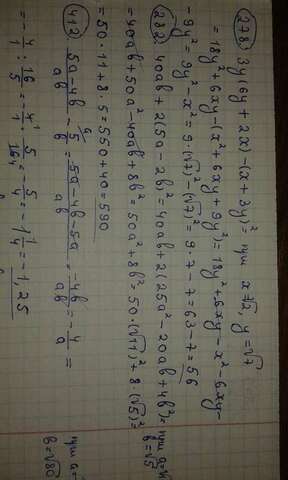 278. 3y(6y + 2x) - (x + 3y)² = при x √2, y = √7
= 18y² + 6xy - (x² + 6xy + 9y²) = 18y² + 6xy - x² - 6xy -
- 9y² = 9y² - x² = 9·(√7)² - (√7)² = 9·7 - 7 = 63 - 7 = 56
282. 40ab + 2(5a - 2b)² = 40ab + 2(25a² - 20ab + 4b²) = при a = √
b = √5
= 40ab + 50a² - 40ab + 8b² = 50a² + 8b² = 50·(√11)² + 8·(√5)² =
= 50·11 + 8·5 = 550 + 40 = 590
412. 5a-4b/ab - 5/b = 5a-4b-5a/ab = -4b/ab = -4/a = при a =
b = √80
= -4/1 : 16/5 = -4/1 · 5/16 = -5/4 = -1 1/4 = -1,25